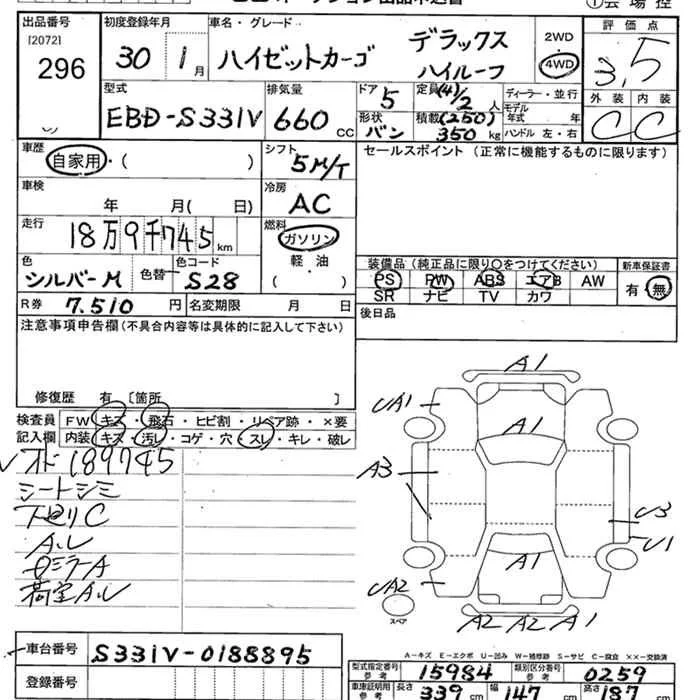 ① 会場控
出品番号
[2072]
296
初度登録年月
30年 1月
車名・グレード
ハイゼットカーゴ デラックス
ハイルーフ
2WD
4WD
評価点
3.5
外装 内装
C C
型式
EBD-S331V
排気量
660 cc
ドア
5
形状
バン
定員 (4)/2 人
積載 (250) 350 kg
ディーラー・並行
モデル年式 年
ハンドル 左・右
車歴
自家用・( )
シフト
5M/T
セールスポイント (正常に機能するものに限ります)
車検
年 月( 日)
冷房
AC
走行
18万9千745km
燃料
ガソリン
軽・油
( )
色
シルバーM
色替
色コード
S28
装備品(純正品に限り○をつけてください)
PS PW ABS エアB AW
SR ナビ TV カワ
新車保証書
有・無
R券 7.510 円
名変期限 月 日
後日品
注意事項申告欄(不具合内容等は具体的に記入して下さい)
修復歴 有 〔箇所 〕
検査員 FW キズ・飛石・ヒビ割・リペア跡・×要
記入欄 内装 キズ・汚レ・コゲ・穴・スレ・キレ・破レ
オド189745
シートシミ
下回りC
A.U
ロミラーA
荷室A.U
A1
UA1
A1
A3
U3
U1
A1
UA2
A2 A2 A1
スペア
A-キズ E-エクボ U-凹み W-補修跡 S-サビ C-腐食 ××-交換済
車台番号
S331V-0188895
登録番号
型式指定番号
参考
15984
類別区分番号
参考
0259
車庫証明用
参考
長さ 339 cm
幅 147 cm
高さ 187 cm